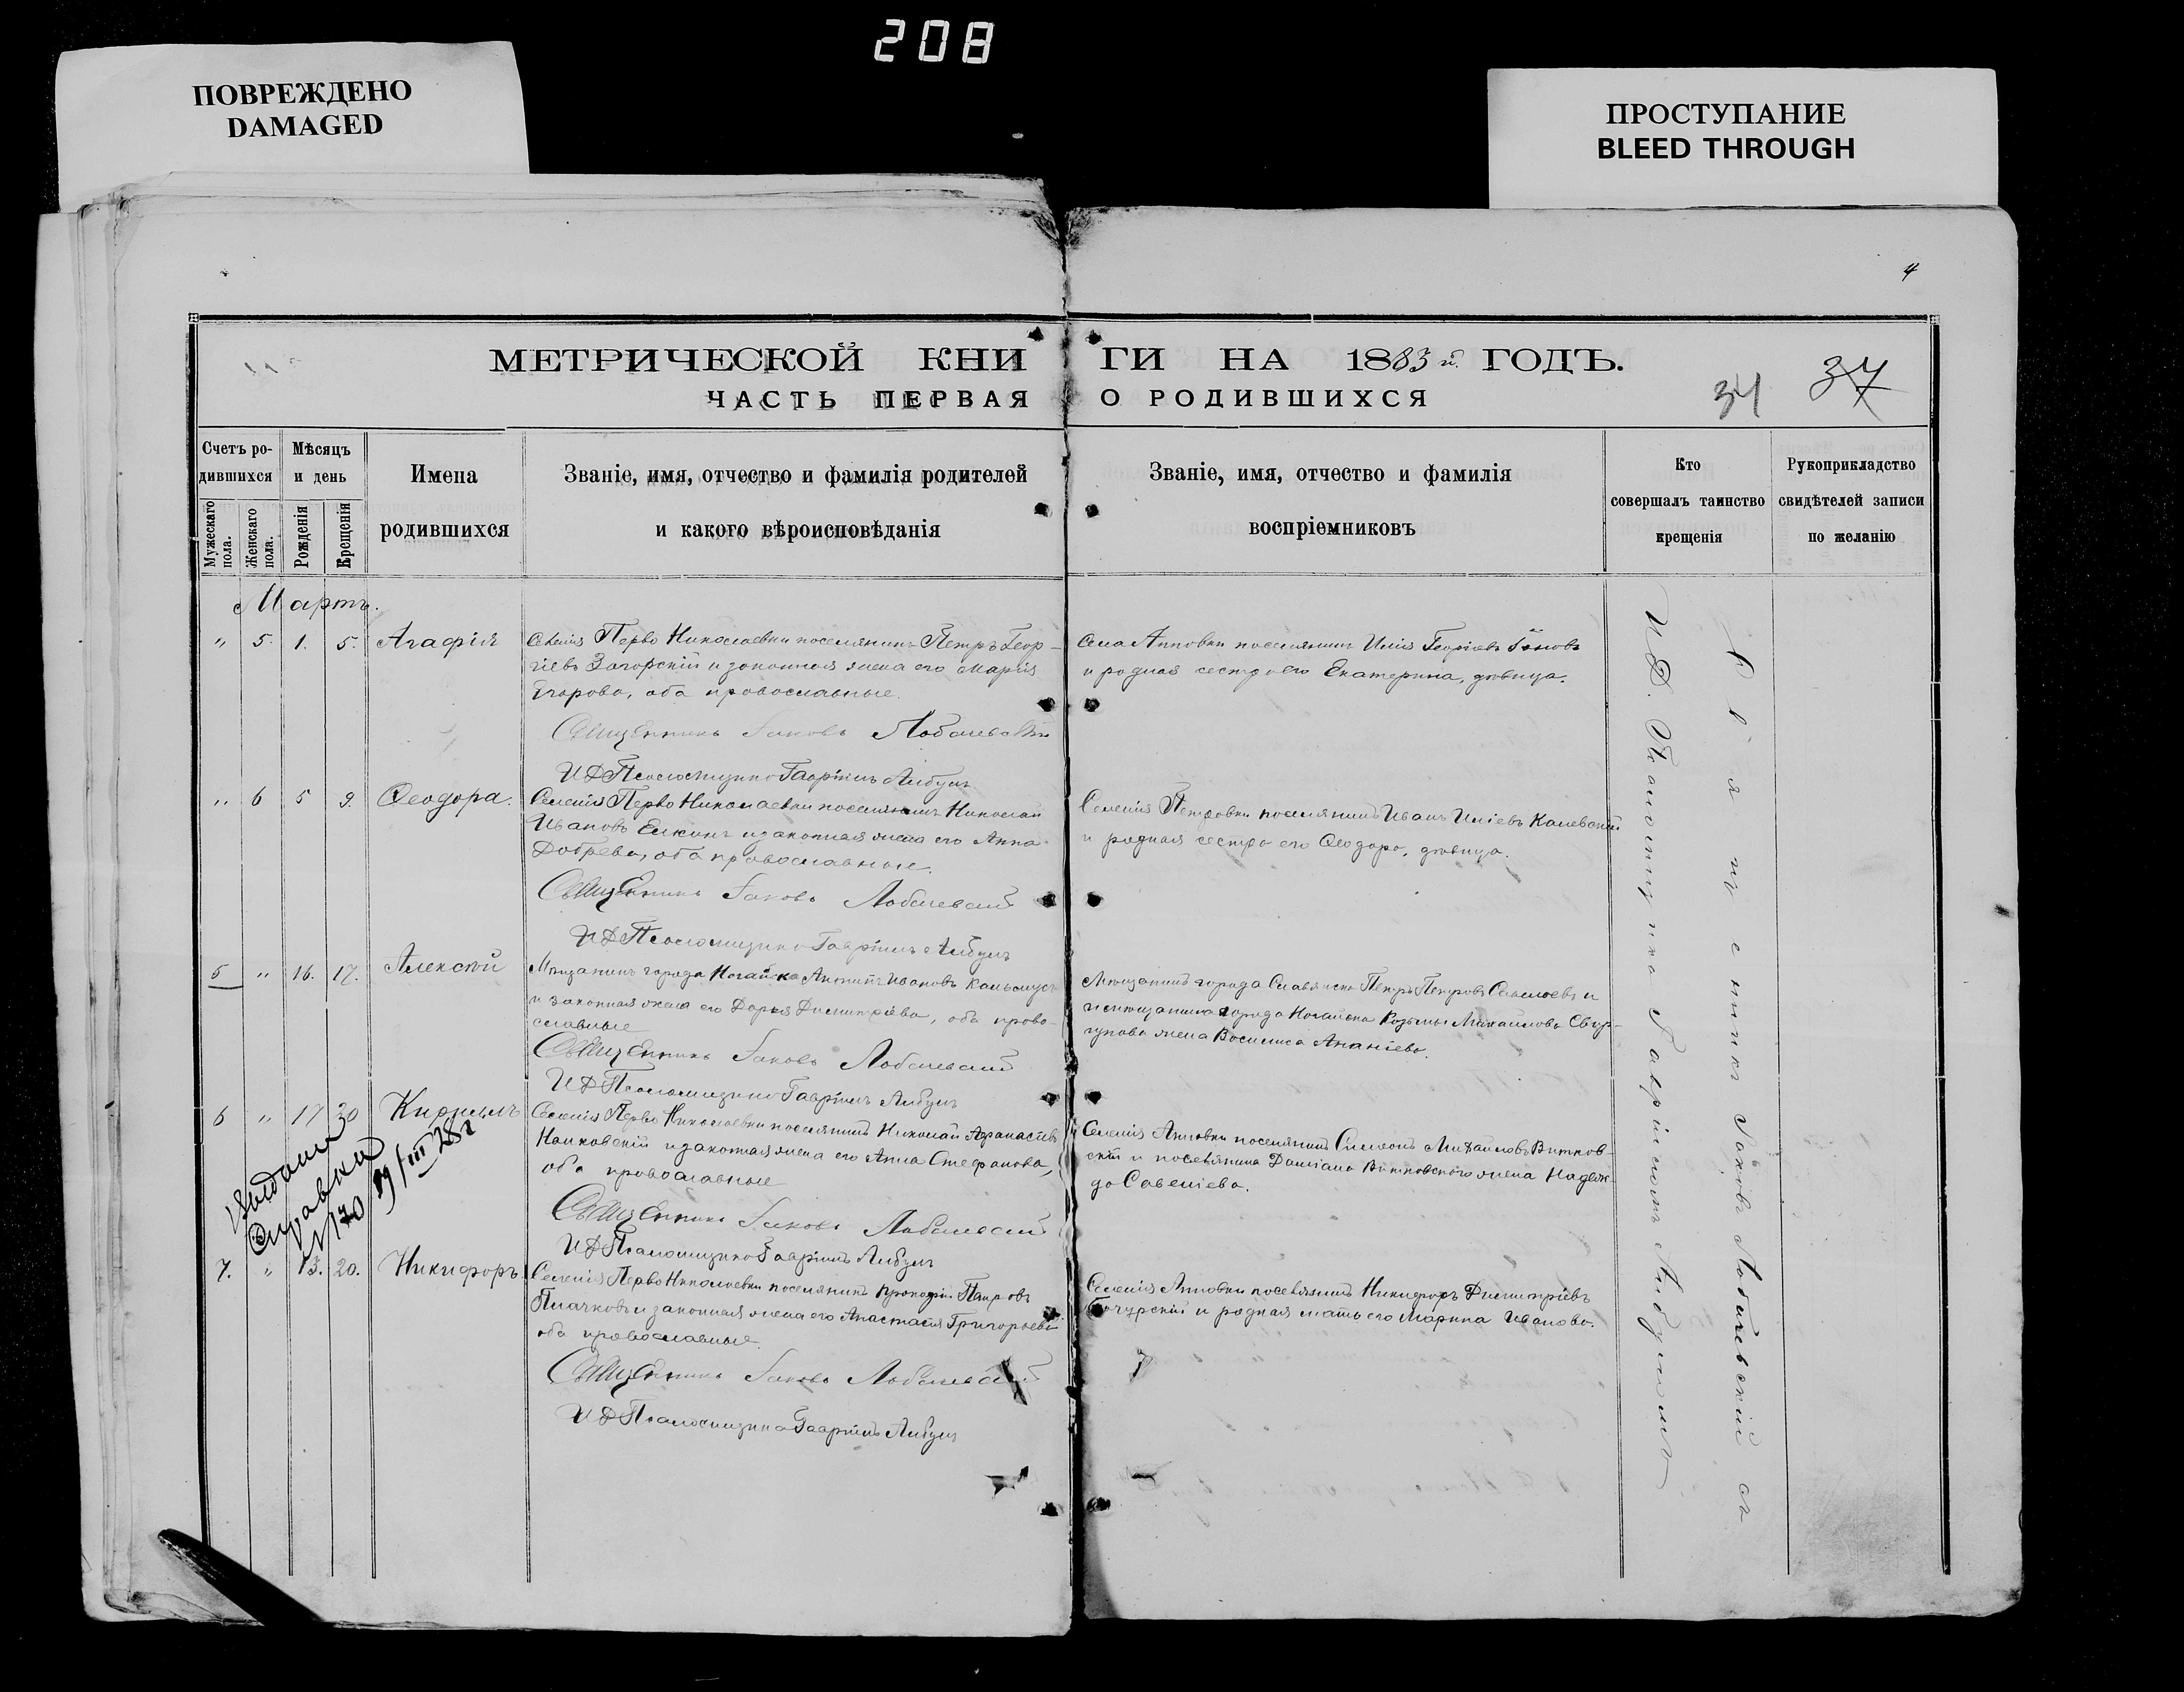 208
ПОВРЕЖДЕНО
DAMAGED
ПРОСТУПАНИЕ
BLEED THROUGH
4
МЕТРИЧЕСКОЙ КНИ
ГИ НА 1883 й. ГОДЪ.
ЧАСТЬ ПЕРВАЯ
О РОДИВШИХСЯ
34
37
Счетъ ро-
дившихся
Мужескаго пола.
Женскаго пола.
Мѣсяцъ
и день
Рожденія
Крещенія
Имена
родившихся
Званіе, имя, отчество и фамилія родителей
и какого вѣроисповѣданія
Званіе, имя, отчество и фамилія
воспріемниковъ
Кто
совершалъ таинство
крещенія
Рукоприкладство
свидѣтелей записи
по желанію
Мартъ.
" 5. 1. 5. Агафія
Селенія Перво Николаевки поселянинъ Петръ Геор-
гіевъ Загорскій и законная жена его Марія
Егорова, оба православные.
Священникъ Іаковъ Лобачевскій
ИД Псаломщика Гавріилъ
Села Анновки поселянинъ Илія Георгіевъ
и родная сестра его Екатерина, дѣвица.
" 6 5 9. Ѳеодора.
Селенія Перво Николаевки поселянинъ Николай
Ивановъ и законная жена его Анна
Добрева, оба православные.
Священникъ Іаковъ Лобачевскій
ИД Псаломщика Гавріилъ
Селенія Петровки поселянинъ Иванъ Иліевъ
и родная сестра его Ѳеодора, дѣвица.
5 " 16. 17. Алексѣй
Мѣщанинъ города Ногайска Ивановъ
и законная жена его Дарія Димитріева, оба право-
славные
Священникъ Іаковъ Лобачевскій
ИД Псаломщика Гавріилъ
Мѣщанинъ города Славянска Петръ Петровъ и
мѣщанина города Ногайска Козьмы Михайлова
жена Василиса Ананіева.
6 " 17 30 Кириллъ
Селенія Перво Николаевки поселянинъ Николай Афанасіевъ
и законная жена его Анна Стефанова,
оба православные
Священникъ Іаковъ Лобачевскій
ИД Псаломщика Гавріилъ
Селенія Анновки поселянинъ Симеонъ Михайловъ Витков-
скій и поселянина Даміана Витковскаго жена Надеж-
да Савеліева.
Выдана
Справка
N 170 19/III 28 г
7. " 13. 20. Никифоръ.
Селенія Перво Николаевки поселянинъ Прокофій Петровъ
Плачковъ и законная жена его Анастасія Григорьева
оба православные.
Священникъ Іаковъ Лобачевскій
ИД Псаломщика Гавріилъ
Селенія Анновки поселянинъ Никифоръ Димитріевъ
и родная мать его Марина Иванова.
Священникъ Іаковъ Лобачевскій съ
И.Д. Псаломщика Гавріиломъ